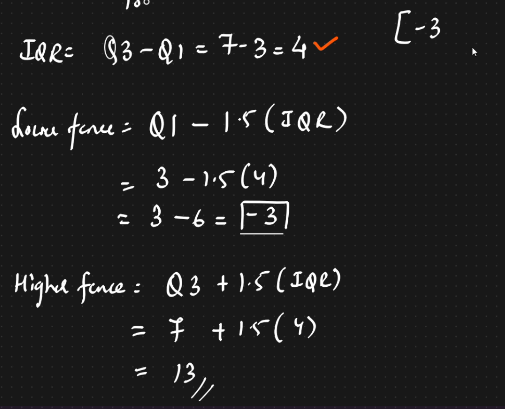 [-3
IQR = Q3 - Q1 = 7 - 3 = 4 ✓
Lower fence = Q1 - 1.5 (IQR)
= 3 - 1.5 (4)
= 3 - 6 = -3
Higher fence = Q3 + 1.5 (IQR)
= 7 + 1.5 (4)
= 13 //